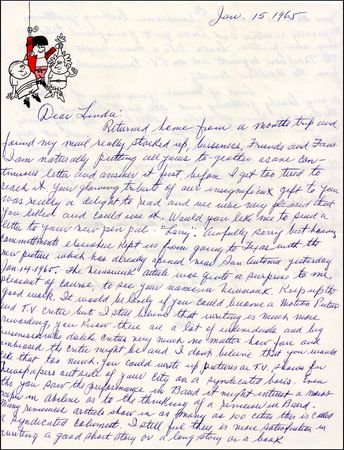 Jan. 15 1965
Dear Linda:
Returned home from a months trip and
found my mail really stacked up, business, Friends and Fans
I am naturally putting all yours to gether as one con-
tinuous letter and answer it just before I get too tired to
reach it. Your glowing tribute of our insignificant gift to you
was really a delight to read and we were very pleased that
you liked and could use it. Would you like me to send a
letter to your new pen pal. "Larry". Awfully sorry but heavy
committments elsewhere kept us from going to Texas with the
new picture which has already opened near San Antonio yesterday
Jan 14, 1965. The Newsweek article was quite a surprise to me,
pleasant of course, to see your name in Newsweek. Keep up the
good work. It would be lovely if you could become a Motion Picture
and TV critic but I still believe that writing is much more
rewarding. you know there are a lot of individuals and big
who dislike critics very much no matter how fair and
unbiased the critic might be and I dont believe that you would
like that too much. You could write up pictures or TV shows for
newspapers outside of your City on a syndicated basis. Even
tho you saw the performance in Baird it might interest a mans
in Abilene as to the thinking of a reviewer in Baird.
Many reviewers article show in as many as 100 cities this is called
a syndicated columnist. I still feel there is more satisfaction in
writing a good short story or a long story or a book